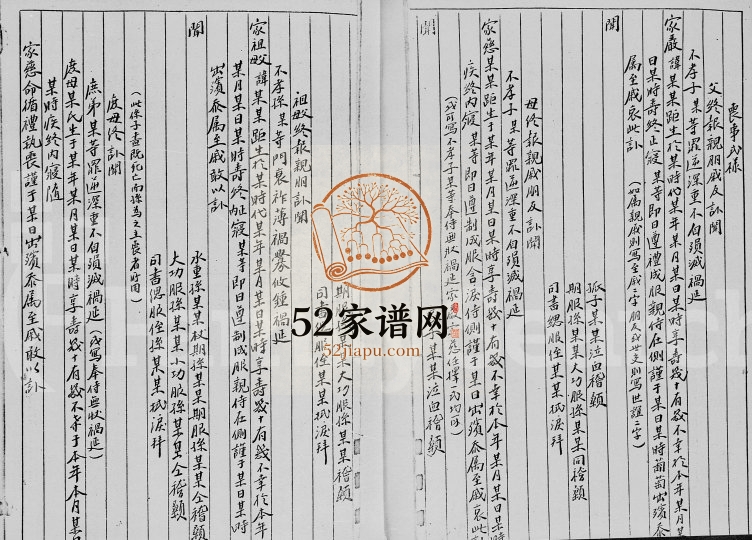 喪事式樣
父終報親朋戚友訃聞
不孝子某等罪逆深重不自殞滅禍延
家嚴諱某某距生於某時代某年某月某日某時享壽幾十有幾不幸於本年某月某
日某時壽終正寢某等即日遵禮成服親侍在側謹于某日某時
出殯忝
屬至戚哀此訃
(如屬親戚則寫至戚二字朋友或世交則寫世誼二字)
聞
孤子某某泣血稽顙
期服孫某某大功服孫某某同稽顙
司書緦服侄某某抆淚拜
母終報親戚朋友訃聞
不孝子某等罪逆深重不自殞滅禍延
家慈某某距生於某年某月某日某時享壽幾十有幾不幸於本年某月某日某時
疾終內寢某等即日遵制成服含淚侍側謹于某日出殯忝屬至戚哀此訃
(或可寫不孝子某等奉侍無狀禍延家
任擇一式均可)
聞
某某泣血稽顙
期服孫某某大功服孫某某稽顙
司書
服侄某某抆淚拜
祖母終報親朋訃聞
不孝孫某等門衰祚薄禍釁攸鍾禍延
家祖母諱某某距生於某時代某年某月某日某時享壽幾十有幾不幸於本年
某月某日某時壽終內寢某等即日遵制成服親侍在側謹于某日某時
出殯忝屬至戚敢以訃
聞
承重孫某某杖期孫某某期服孫某某仝稽顙
大功服孫某某小功服孫某某仝稽顙
司書緦服侄孫某某抆淚拜
(此係子查既死亡而孫為之主喪者所用)
庶母終訃聞
庶弟某等罪逆深重不自殞滅禍延(或寫奉侍無狀禍延)
庶母某氏生于某年某月某日某時享壽幾十有幾不幸于本年本月某日
某時疾終內寢隨
家慈命循禮執喪謹于某日出殯忝屬至戚敢以訃
52家谱网
52jiapu.com